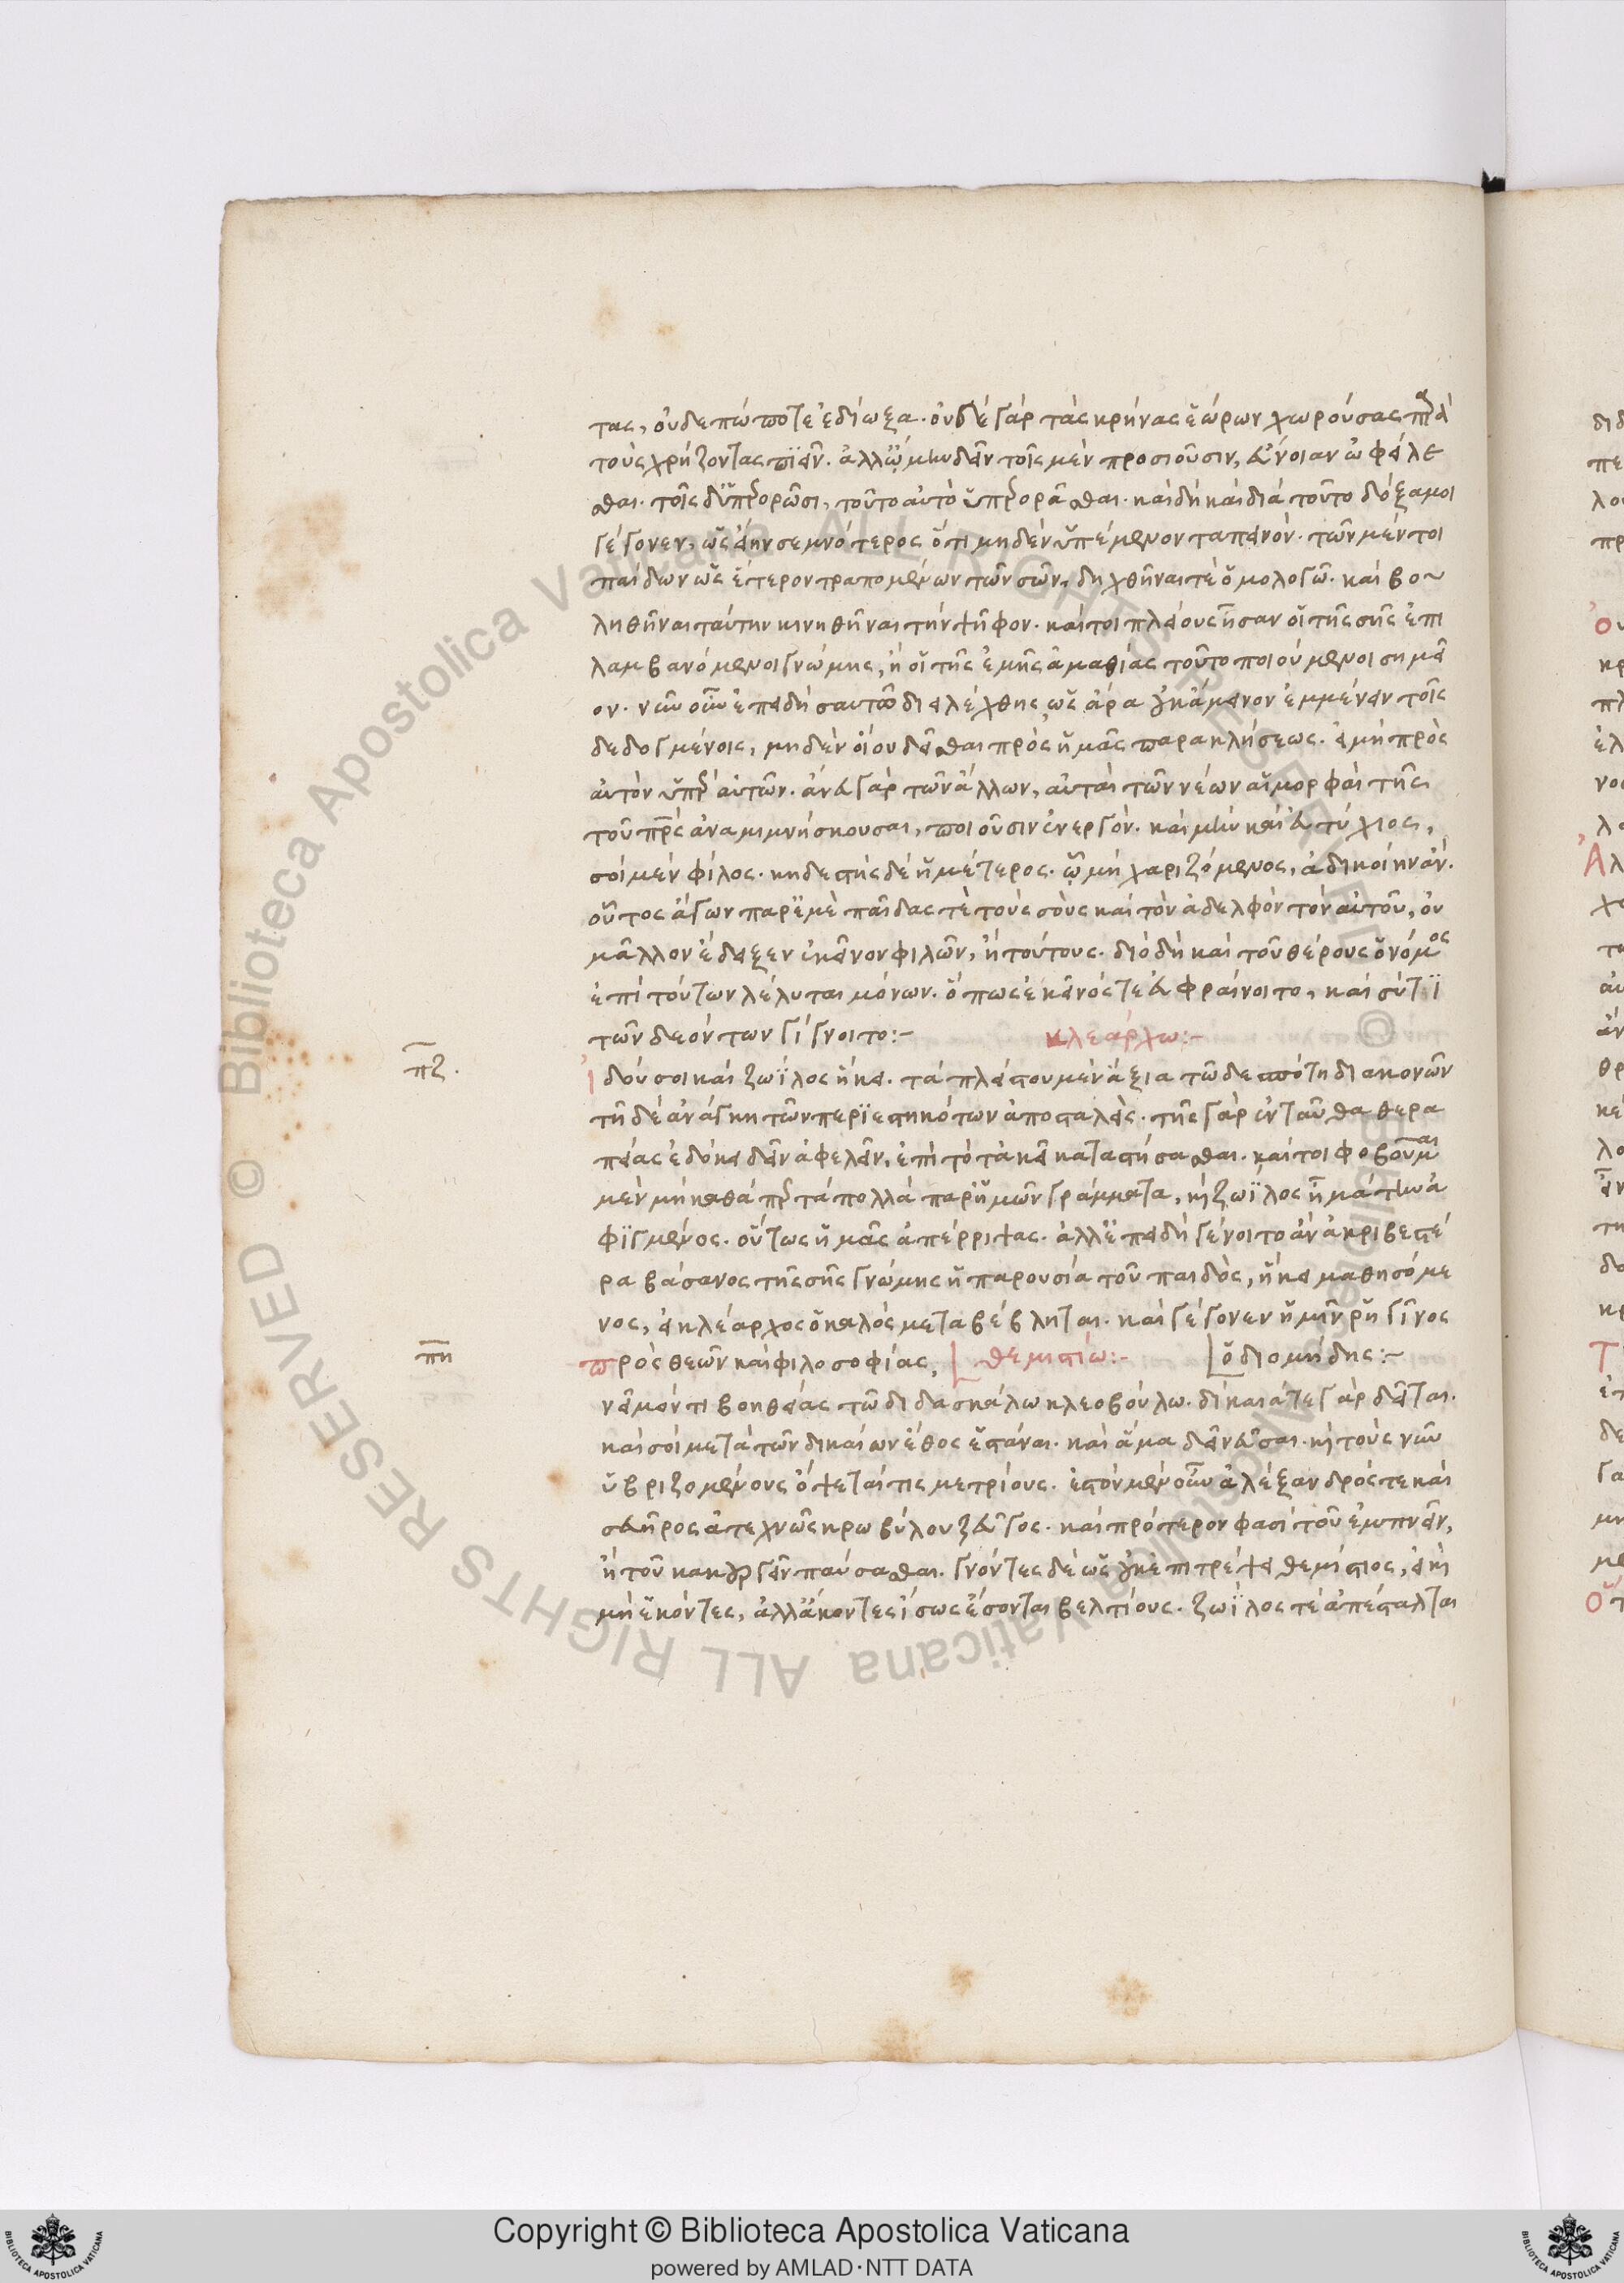 τας, οὐδεπώποτε ἐδίωξα. οὐδὲ γὰρ τὰς κρήνας ἑώρων χωρούσας παρὰ
τοὺς χρήζοντας πιεῖν. ἀλλ' ᾤμην δεῖν τοῖς μὲν προσιοῦσιν, εὔνοιαν ὠφείλε
σθαι. τοῖς δ' ὑπερορῶσι, τοῦτο αὐτὸ ὑπερορᾶσθαι. καὶ δὴ καὶ διὰ τοῦτο δόξα μοι
γέγονεν, ὡς εἴην σεμνότερος ὅτι μηδὲν ὑπέμενον ταπεινόν. τῶν μέντοι
παίδων ὡς ἕτερον τραπομένων τῶν σῶν, δηχθῆναι τὲ ὁμολογῶ. καὶ βου
ληθῆναι ταύτην κινηθῆναι τὴν ψῆφον. καίτοι πλείους ἦσαν οἱ τῆς σῆς ἐπι
λαμβανόμενοι γνώμης, ἢ οἱ τῆς ἐμῆς ἀμαθίας τοῦτο ποιούμενοι σημεῖ
ον. νῦν οὖν ἐπειδὴ σαυτῷ διελέχθης, ὡς ἄρα οὐκ ἄμεινον ἐμμένειν τοῖς
δεδογμένοις, μηδὲν οἴου δεῖσθαι πρὸς ἡμᾶς παρακλήσεως. εἰ μὴ πρὸς
αὐτὸν ὑπὲρ αὐτῶν. ἄνευ γὰρ τῶν ἄλλων, αὐταὶ τῶν νέων αἱ μορφαὶ τῆς
τοῦ πατρὸς ἀναμιμνήσκουσαι, ποιοῦσιν ἐνεργόν. καὶ μὴν καὶ εὐτύχιος,
σοὶ μὲν φίλος. κηδεστὴς δὲ ἡμέτερος. ᾧ μὴ χαριζόμενος, ἀδικοίην ἄν.
οὗτος ἄγων παρ' ἐμὲ παῖδας τὲ τοὺς σοὺς καὶ τὸν ἀδελφὸν τὸν αὐτοῦ, οὐ
μᾶλλον ἔδειξεν ἐκεῖνον φιλῶν, ἢ τούτους. διὸ δὴ καὶ τοῦ θέρους ὁ νόμος
ἐπὶ τούτων λέλυται μόνων. ὅπως ἐκεῖνός τε εὐφραίνοιτο, καὶ σύ τι
τῶν δεόντων γίγνοιτο:-    κλεάρχω:-
πζ. ἰδού σοι καὶ ζωίλος ἥκει. τὰ πλείστου μὲν ἄξια τῷ δεσπότῃ διακονῶν
τῇ δὲ ἀνάγκῃ τῶν περιεστηκότων ἀποσταλείς. τῆς γὰρ ἐνταῦθα θερα
πείας ἐδόκει δεῖν ἀφελεῖν, ἐπὶ τὸ τἀκεῖ καταστήσασθαι. καίτοι φοβοῦμαι
μὲν μὴ καθάπερ τὰ πολλὰ παρ' ἡμῶν γράμματα, καὶ ζωίλος ᾖ μάτην ἀ
φιγμένος. οὕτως ἡμᾶς ἀπέρριψας. ἀλλ' ἐπειδὴ γένοιτο ἂν ἀκριβεστέ
ρα βάσανος τῆς σῆς γνώμης ἡ παρουσία τοῦ παιδός, ἥκει μαθησόμε
νος, εἰ κλέαρχος ὁ καλὸς μεταβέβληται. καὶ γέγονεν ἡμῖν
πη πρὸς θεῶν καὶ φιλοσοφίας, θεμιστίω:-    ὁ διομήδης:-
νεῖμόν τι βοηθείας τῷ διδασκάλω κλεοβούλω. δίκαιά τε γὰρ δεῖται.
καὶ σοὶ μετὰ τῶν δικαίων ἔθος ἑστάναι. καὶ ἅμα δεῖν εὖσαι. καὶ τοὺς νῦν
ὑβριζομένους ὄψεταί τις μετρίους. ἔστον μὲν οὖν ἀλέξανδρός τε καὶ
σευῆρος ἀτεχνῶς κρωβύλου ζεῦγος. καὶ πρότερον φασὶ τοῦ ἐμπνεῖν,
ἢ τοῦ κακουργεῖν παύσασθαι. γνόντες δὲ ὡς οὐκ ἐπιτρέψει θεμίστιος, εἰ καὶ
μὴ ἑκόντες, ἀλλ' ἄκοντες ἴσως ἔσονται βελτίους. ζωίλος τὲ ἀπέσταλται
Copyright © Biblioteca Apostolica Vaticana
powered by AMLAD·NTT DATA